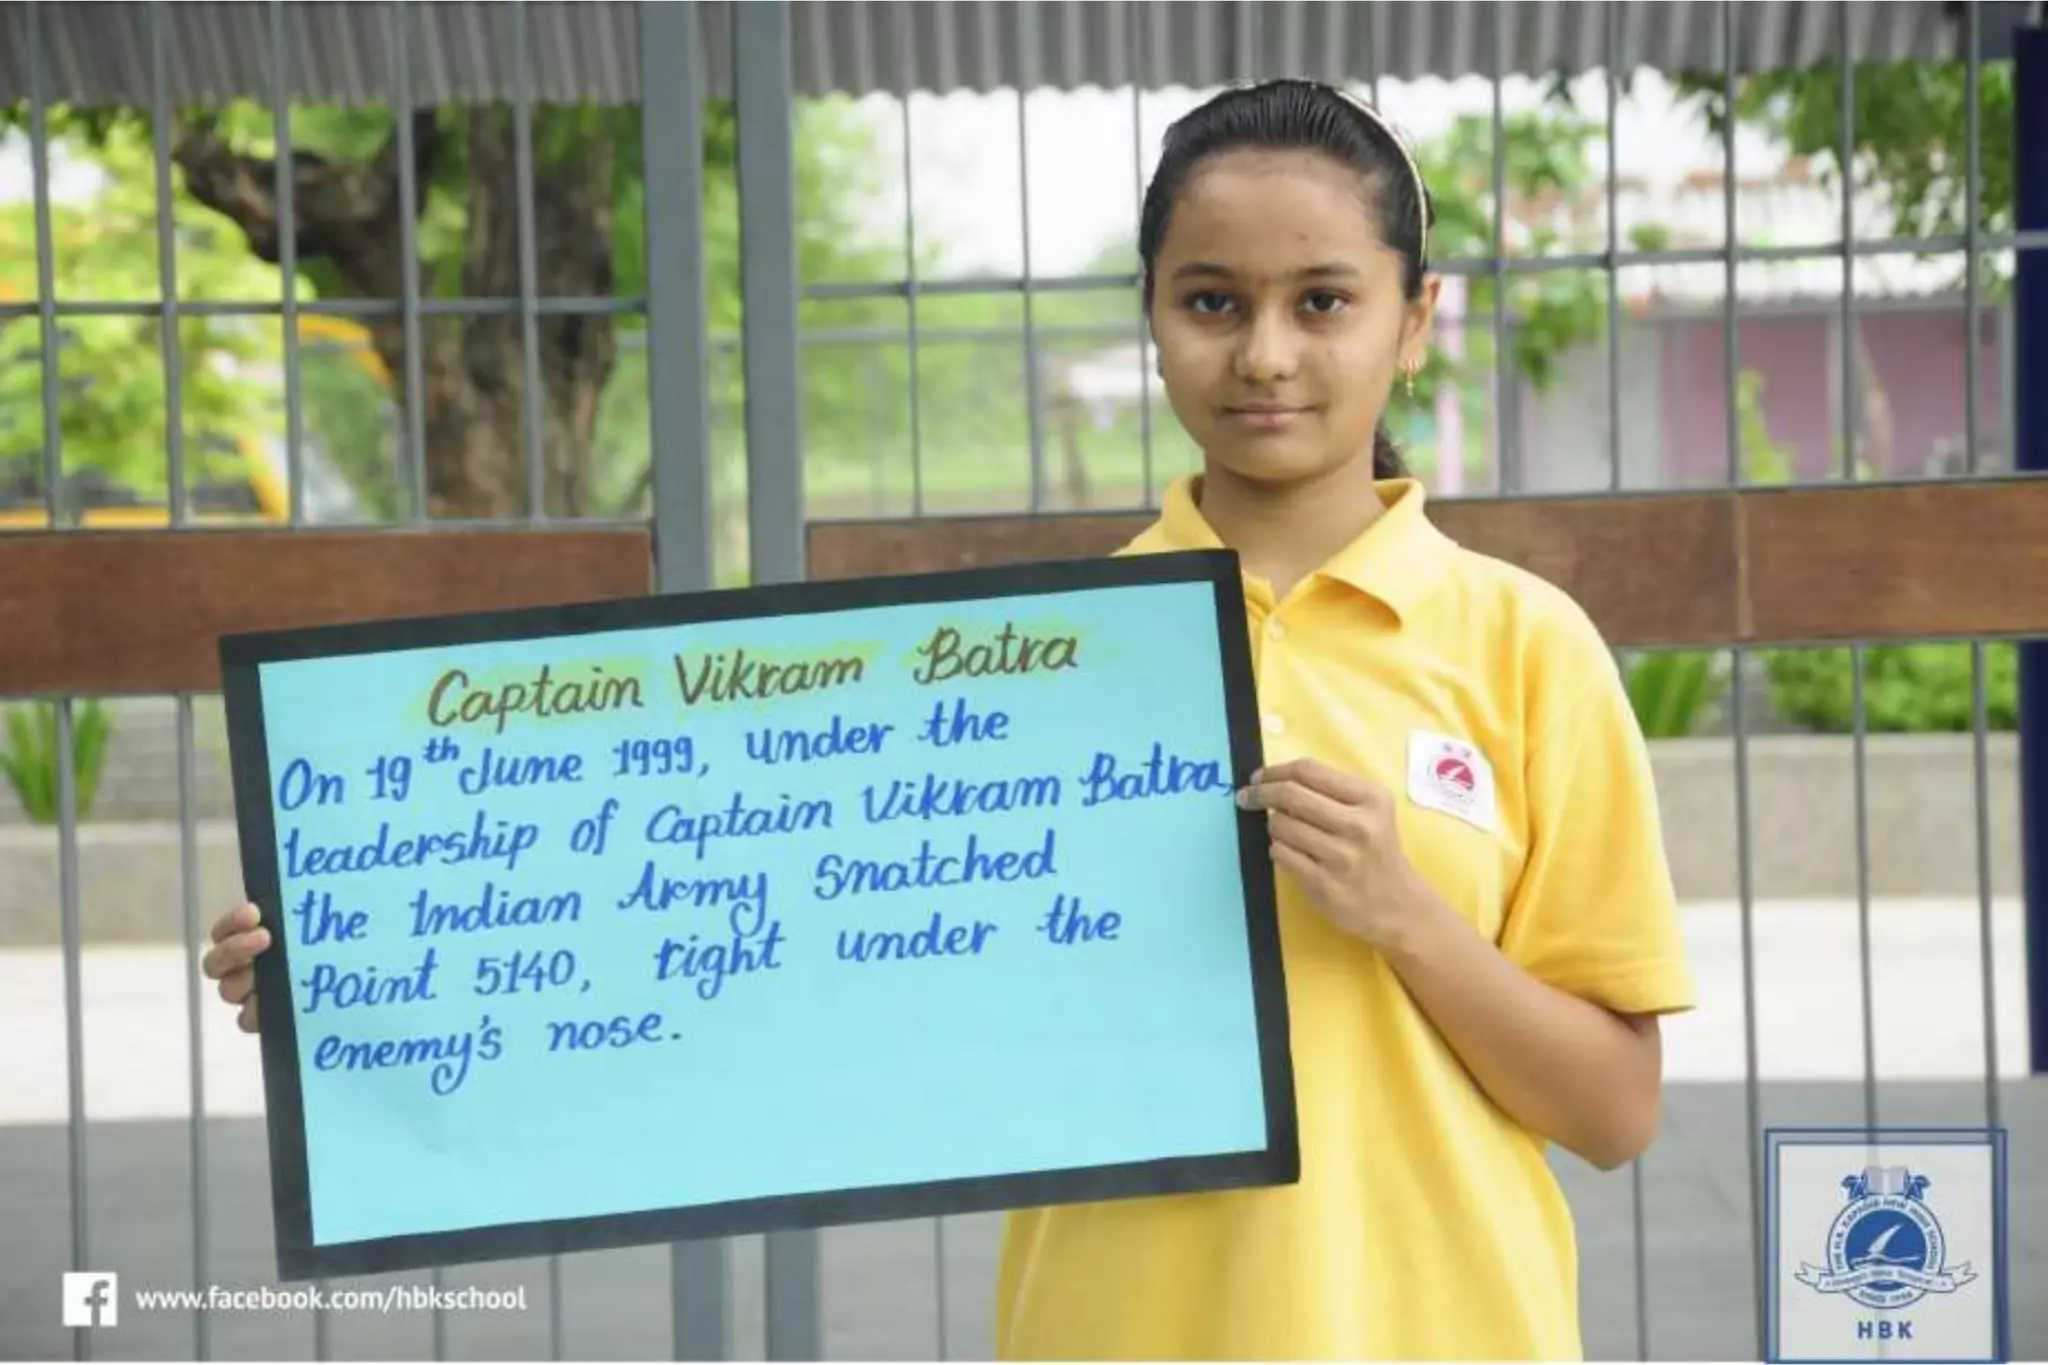 Captain Vikram Batra
On 19th June 1999, under the
leadership of Captain Vikram Batra,
the Indian Army Snatched
Point 5140, right under the
enemy's nose.
www.facebook.com/hbkschool
HBK